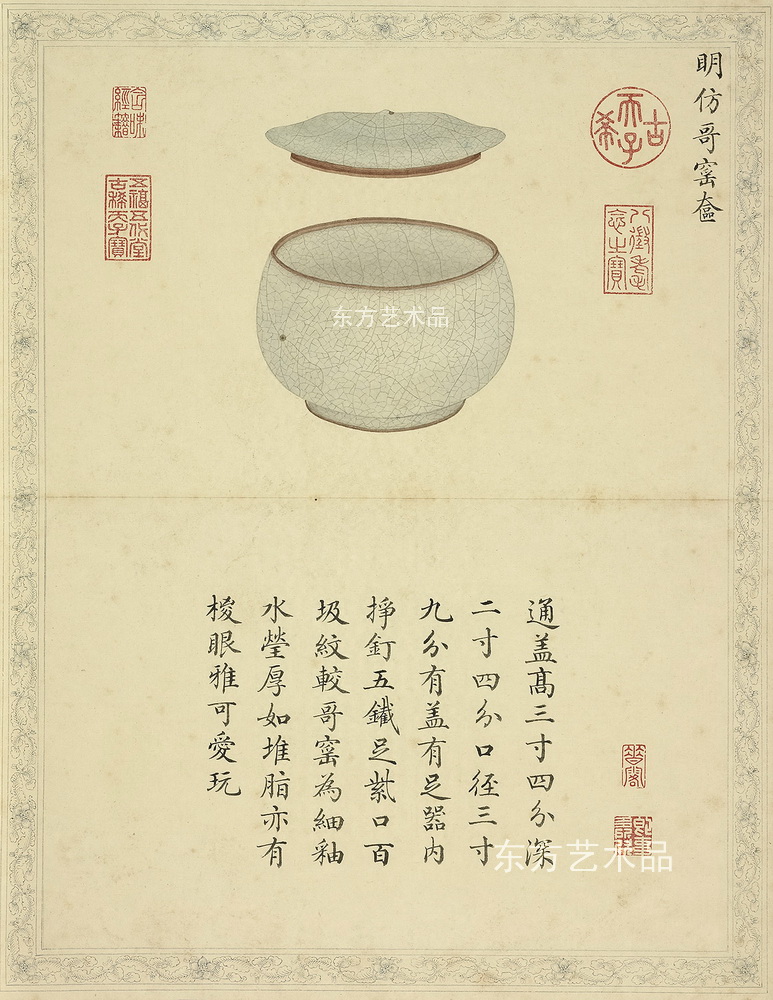 明仿哥窰奩
古希天子
八徵耄念之寶
含味經籍
五福五代堂古稀天子寶
东方艺术品
通盖髙三寸四分深
二寸四分口径三寸
九分有盖有足器内
掙釘五鐵足紫口百
圾紋較哥窰為細釉
水瑩厚如堆脂亦有
椶眼雅可愛玩
东方艺术品